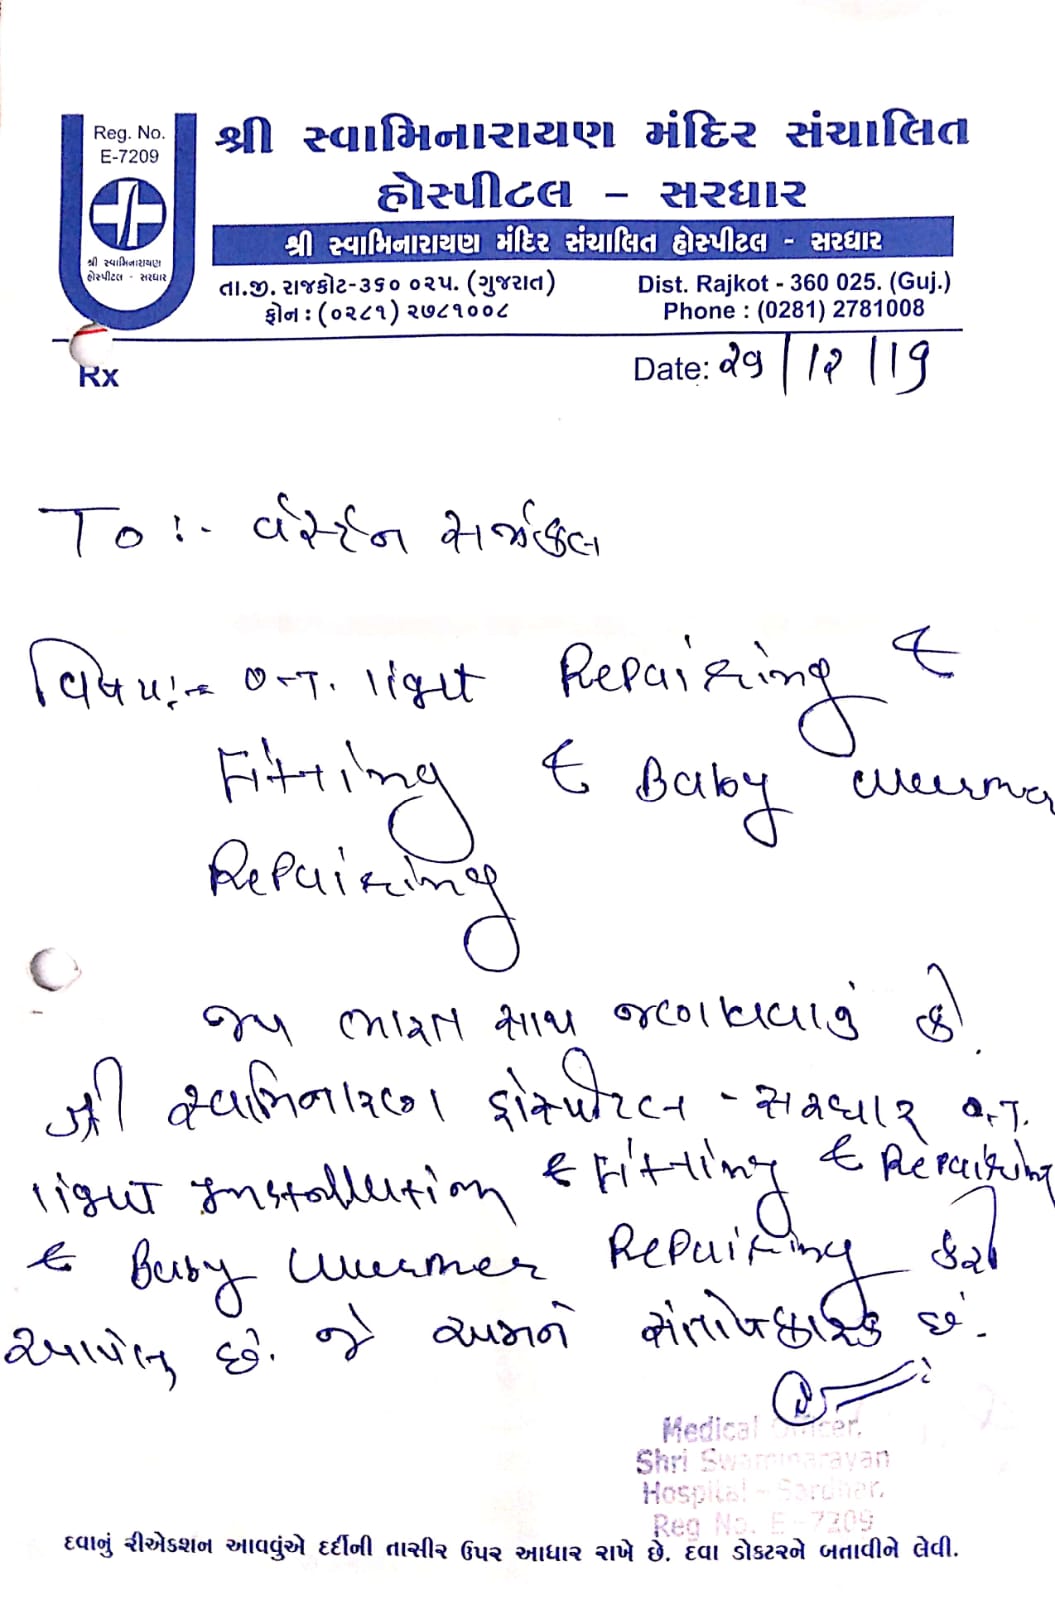 Reg. No.
E-7209
શ્રી સ્વામિનારાયણ
હોસ્પીટલ - સરધાર
શ્રી સ્વામિનારાયણ મંદિર સંચાલિત
હોસ્પીટલ – સરધાર
શ્રી સ્વામિનારાયણ મંદિર સંચાલિત હોસ્પીટલ - સરધાર
તા.જી. રાજકોટ-૩૬૦ ૦૨૫. (ગુજરાત)
Dist. Rajkot - 360 025. (Guj.)
ફોન : (૦૨૮૧) ૨૭૮૧૦૦૮
Phone : (0281) 2781008
Rx
Date: ૨૧/૧૨/૧૯
To :- વેસ્ટર્ન સર્જીકલ
વિષય :- O.T. light Repairing &
Fitting & Baby Wormer
Repairing
જય ભારત સાથ જણાવવાનું કે
શ્રી સ્વામિનારાયણ હોસ્પીટલ - સરધાર O.T.
light Installetion & Fitting & Repairing
& Baby Wormer Repairing કરી
આપેલ છે. જે અમને સંતોષકારક છે.
Medical Officer,
Shri Swaminarayan
Hospital - Sardhar.
Reg No. E-7209
દવાનું રીએકશન આવવુંએ દર્દીની તાસીર ઉપર આધાર રાખે છે. દવા ડોકટરને બતાવીને લેવી.